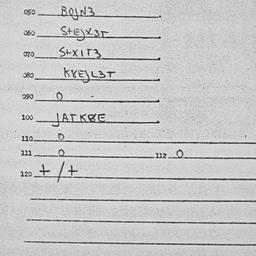 050 BOJN3
060 S+EJX3T
070 S+XIT3
080 KYEJL3T
090 0
100 JATK8E
110 0
111 0 112 0
120 +/+